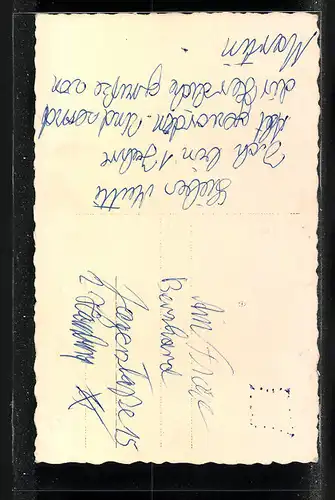 Lieber Mutti
Ich bin 1 Jahre
Alt geworden. Und send
dir Herzliche grüße von
Martin
An Frau
Bernhard
Jägerstraße 15